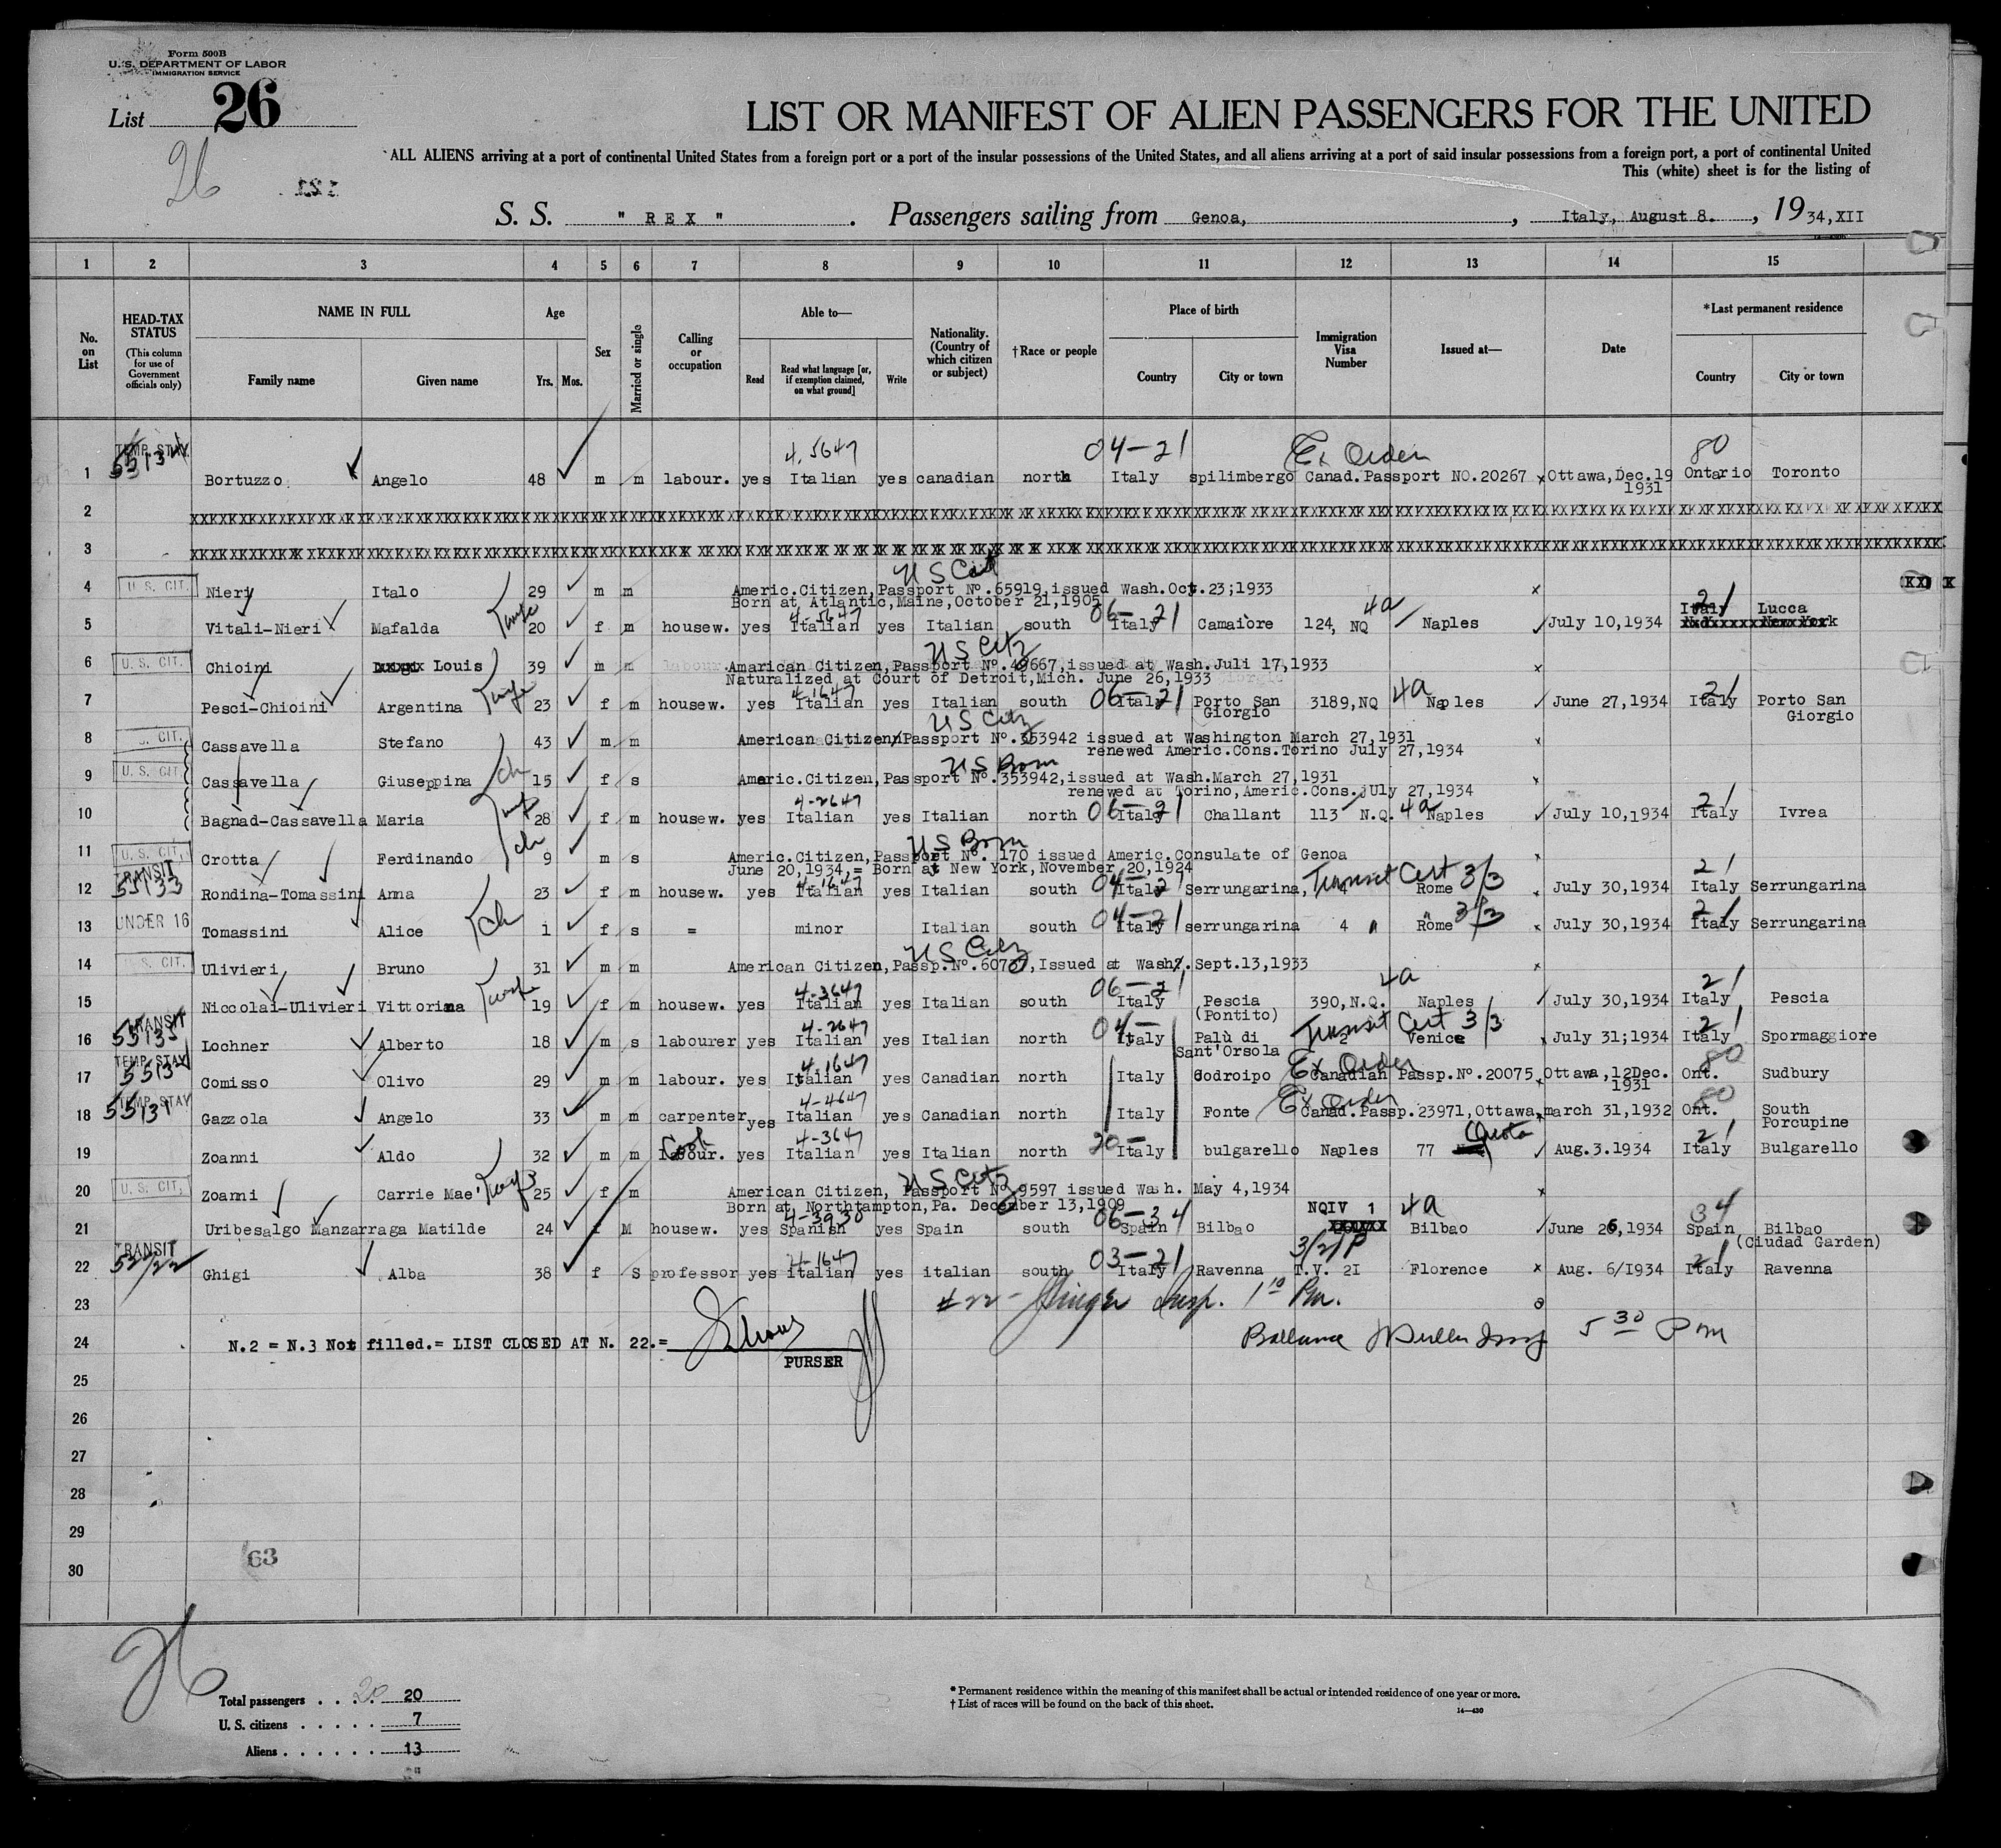 Form 500B
U. S. DEPARTMENT OF LABOR
IMMIGRATION SERVICE
List 26
26
LIST OR MANIFEST OF ALIEN PASSENGERS FOR THE UNITED
ALL ALIENS arriving at a port of continental United States from a foreign port or a port of the insular possessions of the United States, and all aliens arriving at a port of said insular possessions from a foreign port, a port of continental United
This (white) sheet is for the listing of
S. S. " REX " . Passengers sailing from Genoa, , Italy, August 8. , 19 34,XII
1 2 3 4 5 6 7 8 9 10 11 12 13 14 15
No. on List
HEAD-TAX STATUS (This column for use of Government officials only)
NAME IN FULL Family name Given name
Age Yrs. Mos.
Sex
Married or single
Calling or occupation
Able to— Read Read what language [or, if exemption claimed, on what ground] Write
Nationality. (Country of which citizen or subject)
†Race or people
Place of birth Country City or town
Immigration Visa Number
Issued at—
Date
*Last permanent residence Country City or town
TEMP. STAY 4.5647 04-21 Ex Orden 80
1 Bortuzzo Angelo 48 m m labour. yes Italian yes canadian north Italy spilimbergo Canad.Passport NO.20267 x Ottawa,Dec.19 1931 Ontario Toronto
2
3
US Cit
4 U. S. CIT. Nieri Italo 29 m m Americ.Citizen,Passport Nº.65919,issued Wash.Oct.23;1933 x
Born at Atlantic,Maine,October 21,1905
4-5647 06-21 4a 21
5 Vitali-Nieri Mafalda 20 f m housew. yes Italian yes Italian south Italy Camaiore 124, NQ Naples July 10,1934 Italy Lucca
US Citz
6 U. S. CIT. Chioini Louis 39 m m Amarican Citizen,Passport Nº.49667,issued at Wash.Juli 17,1933 x
Naturalized at Court of Detroit,Mich. June 26,1933
4-1647 06-21 4a 21
7 Pesci-Chioini Argentina 23 f m housew. yes Italian yes Italian south Italy Porto San Giorgio 3189,NQ Naples June 27,1934 Italy Porto San Giorgio
US Citz
8 S. CIT. Cassavella Stefano 43 m m American Citizen/Passport Nº.353942 issued at Washington March 27,1931 x
renewed Americ.Cons.Torino July 27,1934
US Born
9 U. S. CIT. Cassavella Giuseppina ch 15 f s Americ.Citizen,Passport Nº.353942,issued at Wash.March 27,1931 x
renewed at Torino,Americ.Cons.jUly 27,1934
4-2647 06-21 4a 21
10 Bagnad-Cassavella Maria 28 f m housew. yes Italian yes Italian north Italy Challant 113 N.Q. Naples July 10,1934 Italy Ivrea
US Born
11 U. S. CIT. Crotta Ferdinando ch 9 m s Americ.Citizen,Passport Nº. 170 issued Americ.Consulate of Genoa x
June 20,1934,= Born at New York,November 20,1924
TRANSIT 55133 4-1647 04-2 Transit Cert 3/3 21
12 Rondina-Tomassini Anna 23 f m housew. yes Italian yes Italian south Italy Serrungarina, 4 Rome July 30,1934 Italy Serrungarina
UNDER 16 04-21 3/3 21
13 Tomassini Alice ch i f s = minor Italian south Italy serrungarina 4 " Rome x July 30,1934 Italy Serrungarina
US Citz
14 S. CIT. Ulivieri Bruno 31 m m American Citizen,Passp.Nº.60737,Issued at Wash.Sept.13,1933 x
4-3647 06-21 4a 21
15 Niccolai-Ulivieri Vittorina 19 f m housew. yes Italian yes Italian south Italy Pescia (Pontito) 390,N.Q. Naples July 30,1934 Italy Pescia
TRANSIT 55135 4-2647 04- Transit Cert 3/3 21
16 Lochner Alberto 18 m s labourer yes Italian yes Italian north Italy Palù di Sant'Orsola 2 Venice July 31;1934 Italy Spormaggiore
TEMP. STAY 4-1647 Ex Order 80
17 Comisso Olivo 29 m m labour. yes Italian yes Canadian north Italy Codroipo Canadian Passp.Nº.20075 x Ottawa,12Dec. 1931 Ont. Sudbury
TEMP. STAY 55131 4-4647 Ex Order 80
18 Gazzola Angelo 33 m m carpenter yes Italian yes Canadian north Italy Fonte Canad.Passp.23971,Ottawa,march 31,1932 Ont. South Porcupine
Cook 4-3647 20- Quota 21
19 Zoanni Aldo 32 m m labour. yes Italian yes Italian north Italy bulgarello Naples 77 Aug.3.1934 Italy Bulgarello
US Citz
20 U. S. CIT. Zoanni Carrie Mae 25 f m American Citizen, Passport Nº 9597 issued Wash. May 4,1934 x
Born at Northtampton,Pa. December 13,1909
4-3930 06-34 NQIV 1 4a 34
21 Uribesalgo Manzarraga Matilde 24 f M housew. yes Spanish yes Spain south Spain Bilbao Bilbao June 26,1934 Spain Bilbao (Ciudad Garden)
TRANSIT 4-1647 03-21 3/2/P 21
22 Ghigi Alba 38 f S professor yes italian yes italian south Italy Ravenna T.V. 2I Florence x Aug. 6/I934 Italy Ravenna
23 #22- Insp. 1 10 Pm.
24 N.2 = N.3 Not filled.= LIST CLOSED AT N. 22.= Ballance Insp 5 30 Pm
PURSER
25
26
27
28
29
30
63
26
Total passengers . . . . 20 20
U. S. citizens . . . . . 7
Aliens . . . . . . 13
* Permanent residence within the meaning of this manifest shall be actual or intended residence of one year or more.
† List of races will be found on the back of this sheet.
14—430